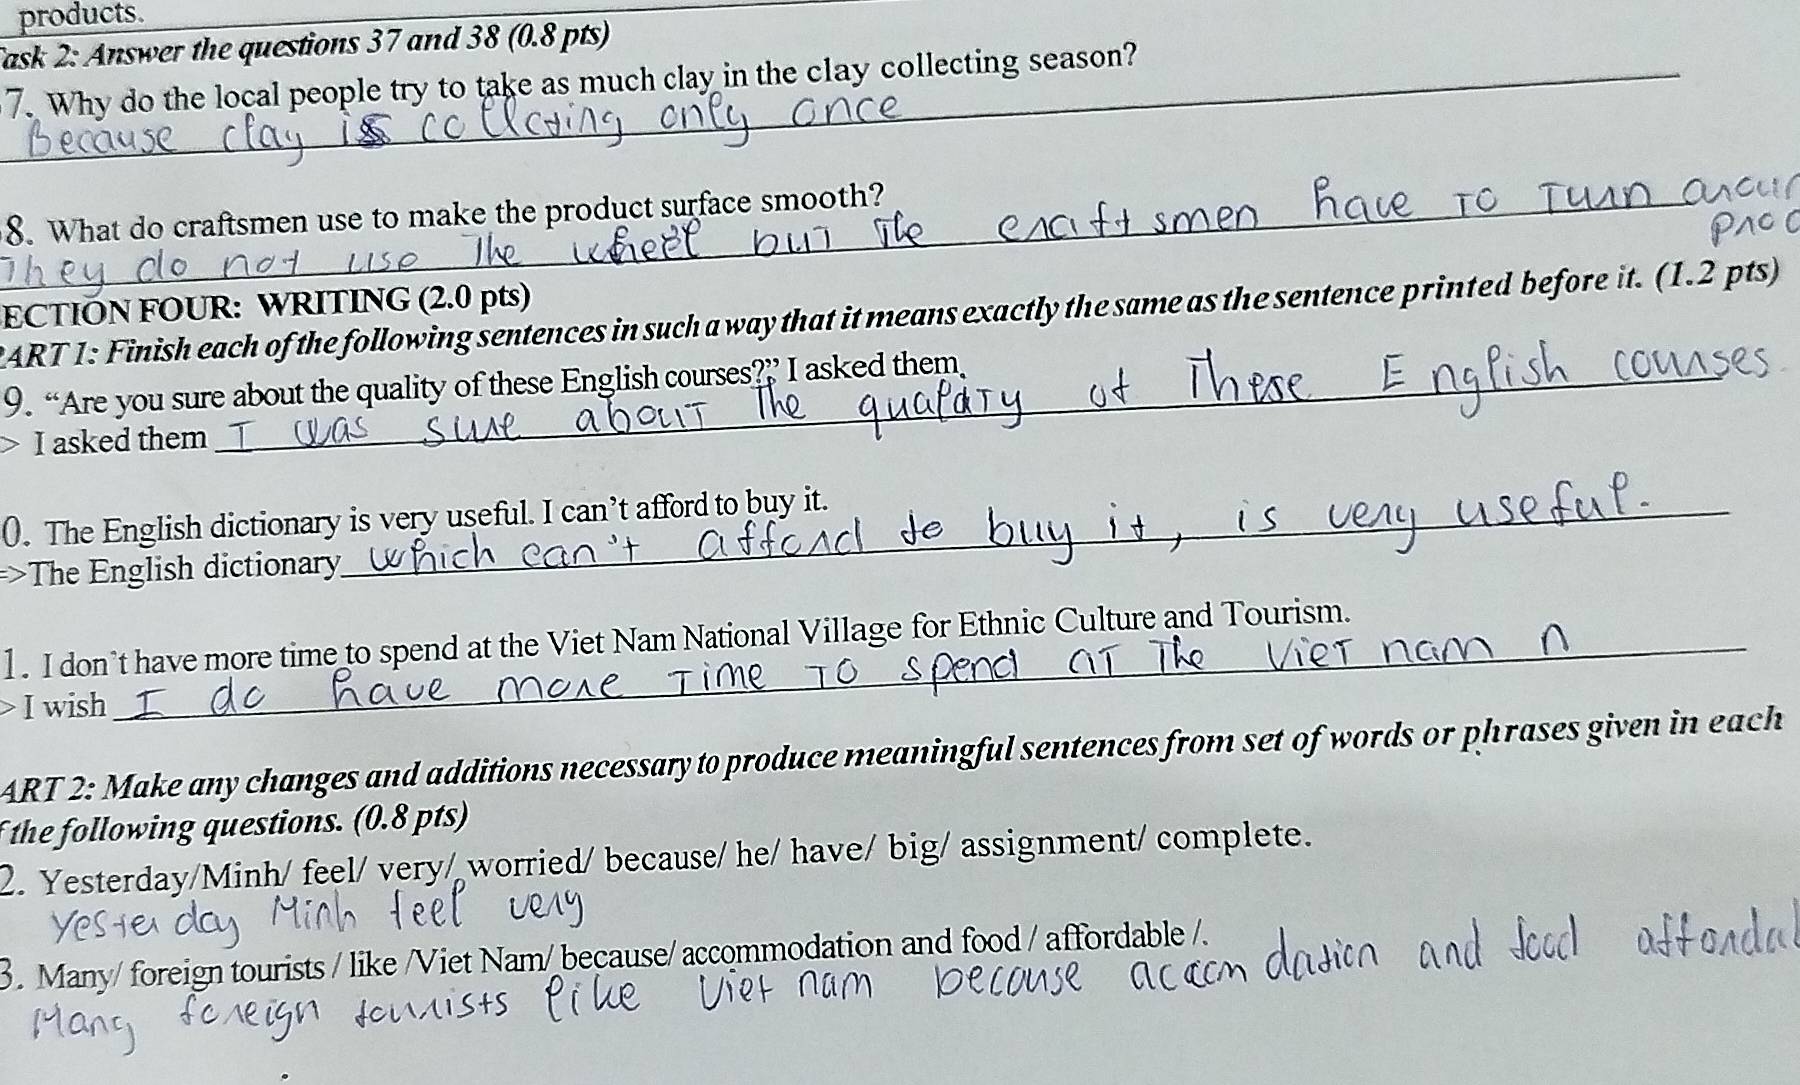 products.
ask 2: Answer the questions 37 and 38 (0.8 pts)
7. Why do the local people try to take as much clay in the clay collecting season?
Because clay is collecting only once
8. What do craftsmen use to make the product surface smooth?
They do not use The wheel but the craftsmen have to Turn
ECTION FOUR: WRITING (2.0 pts)
ART 1: Finish each of the following sentences in such a way that it means exactly the same as the sentence printed before it. (1.2 pts)
9. “Are you sure about the quality of these English courses?” I asked them.
> I asked them I was sure about The quality of These English courses.
0. The English dictionary is very useful. I can’t afford to buy it.
=>The English dictionary which can't afford to buy it, is very useful.
1. I don’t have more time to spend at the Viet Nam National Village for Ethnic Culture and Tourism.
> I wish I do have more Time To spend at The Viet nam n
ART 2: Make any changes and additions necessary to produce meaningful sentences from set of words or phrases given in each
f the following questions. (0.8 pts)
2. Yesterday/Minh/ feel/ very/ worried/ because/ he/ have/ big/ assignment/ complete.
Yesterday Minh feel very
3. Many/ foreign tourists / like /Viet Nam/ because/ accommodation and food / affordable /.
Many foreign tourists like Viet nam because acacm dation and food